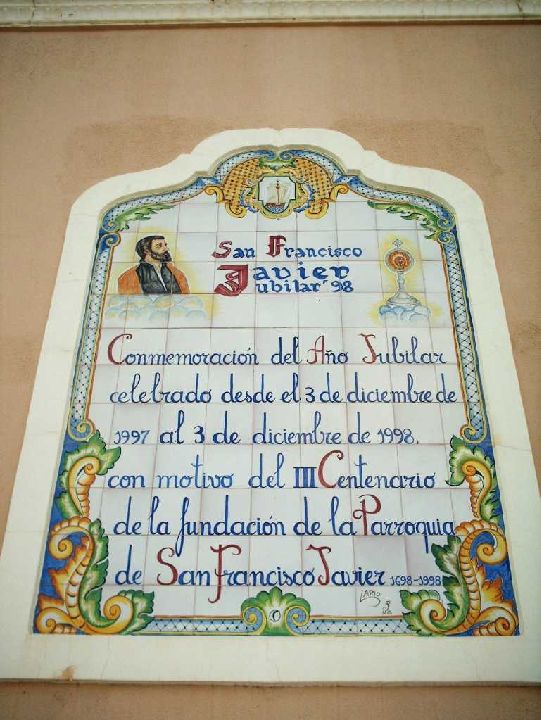 San Francisco
Javier
Jubilar 98
Conmemoración del Año Jubilar
celebrado desde el 3 de diciembre de
1997 al 3 de diciembre de 1998.
con motivo del III Centenario
de la fundación de la Parroquia
de San Francisco Javier 1698-1998